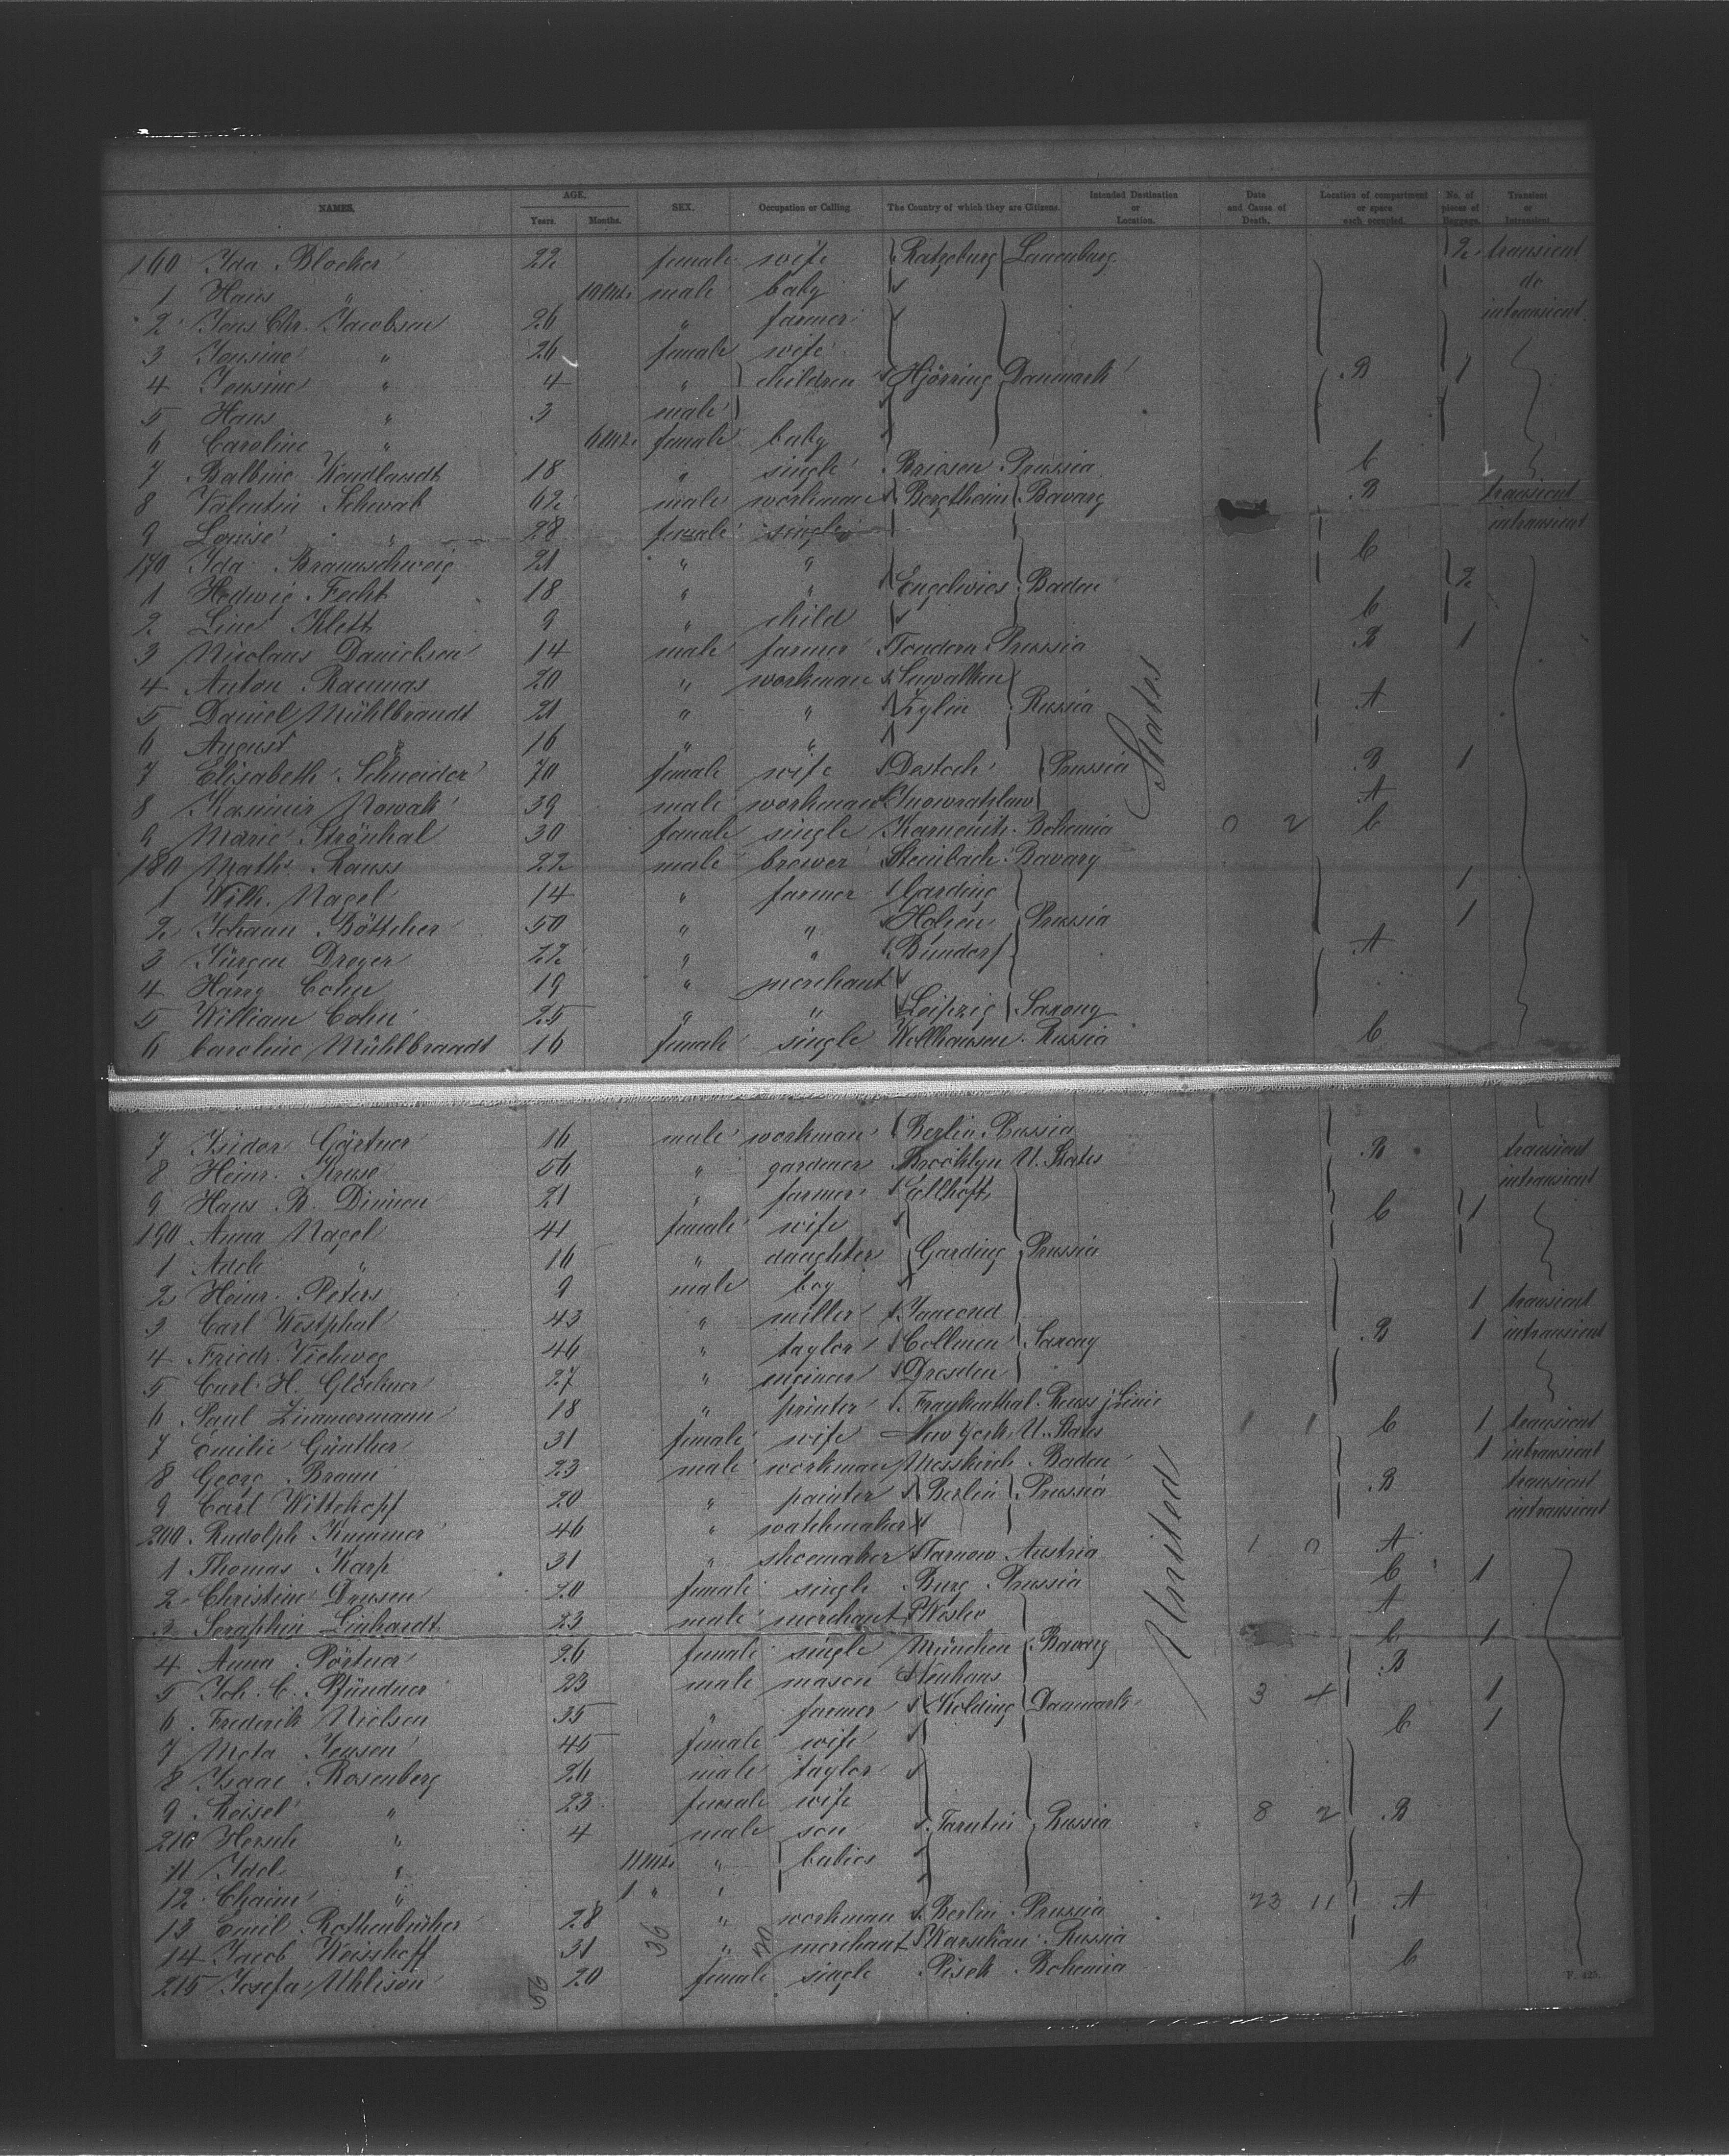 NAMES. AGE. SEX. Occupation or Calling. The Country of which they are Citizens. Intended Destination or Location. Date and Cause of Death. Location of compartment or space each occupied. No. of pieces of Baggage. Transient or Intransient.
Years. Months.
160 Ida Blocker 22 female wife Ratzeburg Lauenburg 2 transient
1 Hans " 10 Mts. male baby do
2 Jens Chr. Jacobsen 26 " farmer intransient
3 Jensine " 26 female wife
4 Jensine " 4 " children Hjörring Danmark B 1
5 Hans " 3 male
6 Caroline " 6 Mts. female baby
7 Balbine Wendlandt 18 " single Briesen Prussia C
8 Valentin Schwab 62 male workman Bergtheim Bavary B transient
9 Louise " 28 female single intransient
170 Ida Braunschweig 21 " " C
1 Hedwig Fecht 18 " " Engelwies Baden 2
2 Line Klett 9 " child C
3 Nicolaus Danielsen 14 male farmer Tondern Prussia B 1
4 Anton Raumas 20 " workman Suwalken
5 Daniel Mühlbrandt 21 " " Kylin Russia A
6 August " 16 " "
7 Elisabeth Schneider 70 female wife Dostoch Prussia B 1
8 Kasimir Nowak 39 male workman Inowratzlaw A
9 Marie Strönhal 30 female single Karneuth Bohemia 0 2 C
180 Maths. Rauss 22 male brewer Steinbach Bavary
1 Wilh. Nagel 14 " farmer Garding 1
2 Johann Böttcher 50 " " Holzen Prussia 1
3 Jürgen Dreyer 22 " " Bündorf A
4 Harry Cohn 19 " merchant
5 William Cohn 25 " " Leipzig Saxony
6 Caroline Mühlbrandt 16 female single Wollhausen Russia C
7 Isidor Gärtner 16 male workman Berlin Prussia
8 Heinr. Kruse 56 " gardener Brooklyn U. States B transient
9 Hans B. Dinsen 21 " farmer Ellhoft intransient
190 Anna Nagel 41 female wife C 1
1 Adele " 16 " daughter Garding Prussia
2 Heinr. Peters 9 male boy
3 Carl Westphal 43 " miller 1 transient
4 Friedr. Viehweg 46 " taylor Collmen Saxony B 1 intransient
5 Carl H. Glöckner 27 " Dresden
6 Paul Zimmermann 18 " printer Frankenthal Reuss j Linie
7 Emilie Günther 31 female wife New York U. States 1 1 C 1 transient
8 Georg Braun 23 male workman Messkirch Baden 1 intransient
9 Carl Wittkopf 20 " painter Berlin Prussia B transient
200 Rudolph Kummer 46 " watchmaker intransient
1 Thomas Karp 31 " shoemaker Tarnow Austria 1 0 A
2 Christine Drusen 20 female single Burg Prussia C 1
3 Seraphin Linhardt 23 male merchant A
4 Anna Pörtner 26 female single München Bavary C 1
5 Joh. C. Pfündner 23 male mason Neuhaus B
6 Frederik Nielsen 35 " farmer Kolding Danmark 3 4 1
7 Meta Jensen 45 female wife C 1
8 Isaac Rosenberg 26 male taylor
9 Reisel " 23 female wife
210 Hersch " 4 male son Tarutin Russia 8 2 B
11 Idel " 11 Mts. " babies
12 Chaim " 1 " "
13 Emil Rothenbücher 28 " workman Berlin Prussia 23 11 A
14 Jacob Weisshoff 31 " merchant Warschau Russia
215 Josefa Uhlison 20 female single Pisek Bohemia C
United States
36